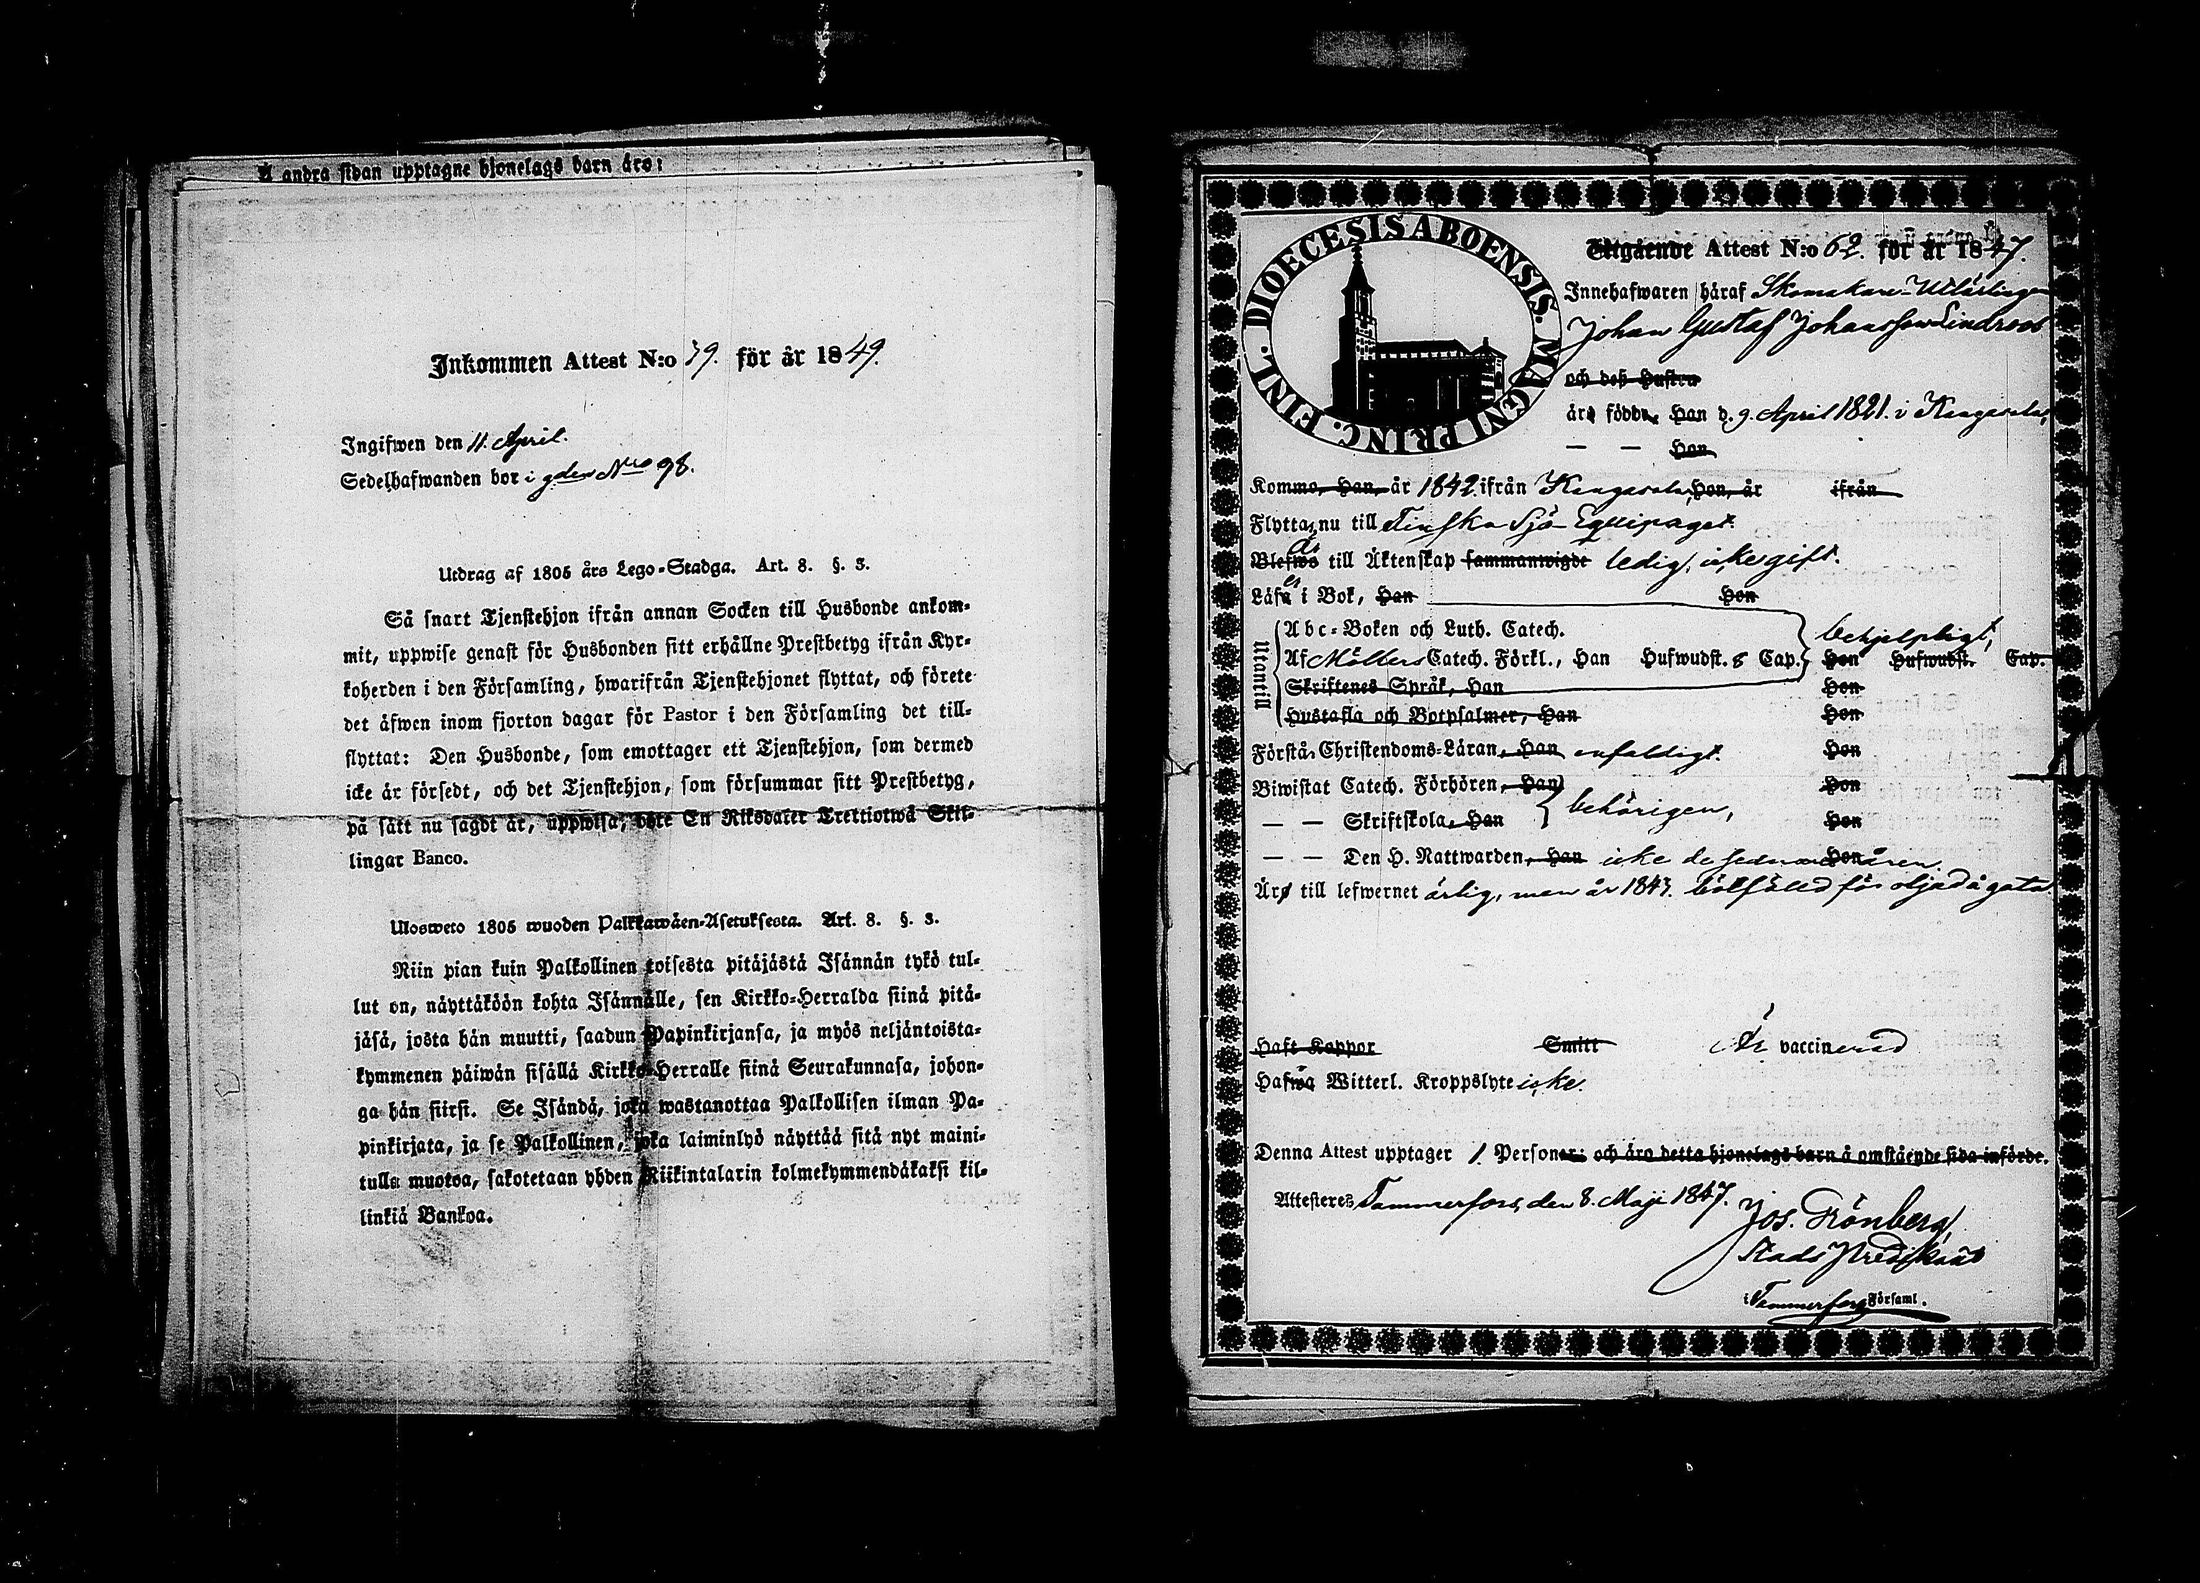 Å andra sidan upptagne hjonelags barn äro:
Inkommen Attest N:o 39. för år 1849.
Ingifwen den 11. April.
Sedelhafwanden bor i gden Nro 98.
Utdrag af 1805 års Lego-Stadga. Art. 8. §. 3.
Så snart Tjenstehjon ifrån annan Socken till Husbonde ankom-
mit, uppwise genast för Husbonden sitt erhållne Prestbetyg ifrån Kyr-
koherden i den Församling, hwarifrån Tjenstehjonet flyttat, och förete
det äfwen inom fjorton dagar för Pastor i den Församling det till-
flyttat: Den Husbonde, som emottager ett Tjenstehjon, som dermed
icke är försedt, och det Tjenstehjon, som försummar sitt Prestbetyg,
på sätt nu sagdt är, uppwisa, böte En Riksdaler Trettiotwå Skil-
lingar Banco.
Ulosweto 1805 wuoden Palkkawäen-Asetuksesta. Art. 8. §. 3.
Niin pian kuin Palkollinen toisesta pitäjästä Isännän tykö tul-
lut on, näyttäköön kohta Isännälle, sen Kirkko-Herralda siinä pitä-
jäsä, josta hän muutti, saadun Papinkirjansa, ja myös neljäntoista-
kymmenen päiwän sisällä Kirkko-Herralle siinä Seurakunnasa, johon-
ga hän siirsi. Se Isändä, joka wastanottaa Palkollisen ilman Pa-
pinkirjata, ja se Palkollinen, joka laiminlyö näyttää sitä nyt maini-
tulla muotoa, sakotetaan yhden Riikintalarin kolmekymmendäkaksi kil-
linkiä Bankoa.
DIOECESIS ABOENSIS. MAGNI PRINC. FINL.
Utgående Attest N:o 62. för år 1847.
Innehafwaren häraf Skomakare-Utlärlingen
Johan Gustaf Johansson Lindroos
och deß Hustru
äro födde, Han d. 9. April 1821. i Kangasala,
— — Hon
Komme, Han, år 1842. ifrån Kangasala, Hon, år ifrån
Flytta, nu till Finska Sjö-Equipaget.
Blefwo är till Äktenskap sammanwigde ledig, icke gift.
Läsa er i Bok, Han Hon
Utantill
Abc-Boken och Luth. Catech.
Af Möllers Catech. Förkl., Han Hufwudst. 8 Cap. behjelpligt, Hon Hufwudst. Cap.
Skriftenes Språk, Han Hon
Hustafla och Botpsalmer, Han Hon
Förstå Christendoms-Läran, Han enfaldigt. Hon
Biwistat Catech. Förhören, Han Hon
— — Skriftskola, Han behörigen, Hon
— — Den H. Nattwarden, Han icke de sednare Hon åren.
Äro till lefwernet ärlig, men år 1843. bötfälld för oljud å gata
Haft Koppor Smitt Är vaccinerad
Hafwa Witterl. Kroppslyte icke.
Denna Attest upptager 1. Personer: och äro detta hjonelags barn å omstående sida införde.
Attesteres Tammerfors, den 8. Maji 1847.
Jos. Grönberg
Stads Predikant
i Tammerfors Församl.